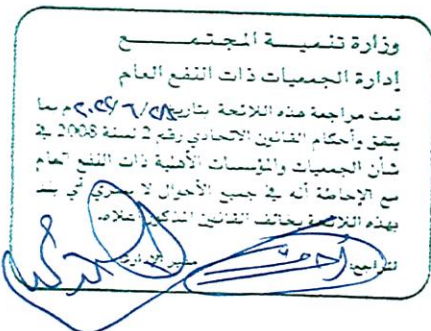 وزارة تنميـــة المجتمـــــع
إدارة الجمعيات ذات النفع العام
تمت مراجعة هذه اللائحة بتاريخ م بما
يتفق وأحكام القانون الاتحادي رقم 2 لسنة 2008 في
شأن الجمعيات والمؤسسات الأهلية ذات النفع العام
مع الإحاطة أنه في جميع الأحوال لا يسري أي بند
بهذه اللائحة يخالف القانون المذكور أعلاه.
المراجع: مدير الإدارة